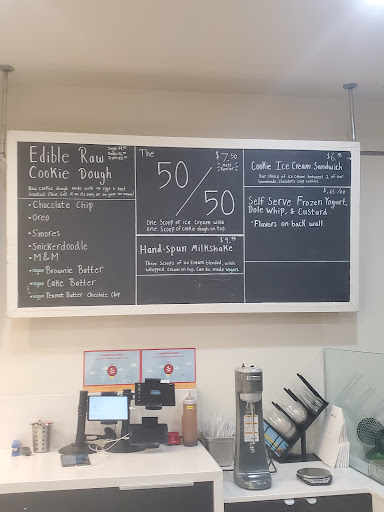 Edible Raw
Cookie Dough
Raw cookie dough made with no eggs & heat
treated flour. Eat it on its own, or on your ice cream!
- Chocolate Chip
- Oreo
- S'mores
- Snickerdoodle
- M&M
- vegan Brownie Batter
- vegan Cake Batter
- vegan Peanut Butter Chocolate Chip
The
$7.50
50/50
One Scoop of ice cream with
one Scoop of cookie dough on top
$9.99
Hand-Spun Milkshake
Three Scoops of ice cream blended, with
whipped cream on top. Can be made vegan.
Cookie Ice Cream Sandwich
Your choice of ice cream between 2 of our
homemade chocolate chip cookies
Self Serve Frozen Yogurt,
Dole Whip, & Custard
- Flavors on back wall.